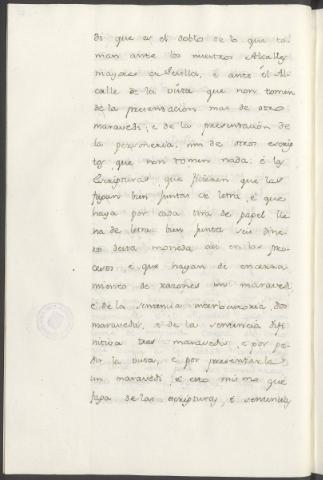 di que es el doblo de lo que to-
man ante los nuestros Alcalles
mayores de Sevilla, e ante el Al-
calle de la vista que non tomen
de la presentacion mas de otro
maravedi, e de la presentación de
la personeria, nin de otros escrip-
tos, que non tomen nada: e las
Escripturas, que ficieren que las
fagan bien juntas de letra, e que
haya por cada tira de papel lle-
na de letra bien junta seis dine-
ros desta moneda asi en los pro-
cesos, e que hayan de encerra-
miento de razones un maravedi
e de la sentencia interlocutoria, dos
maravedis, e de la sentencia difi-
nitiva tres maravedis, e por pe-
dir la vista, e por presentarla
un maravedi, e esto mismo que
faga de las escripturas, e sentencias